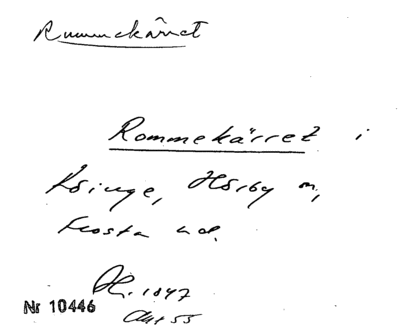 Rummekärret
Rommekärret i
Osinge, Hörby m,
Frosta hd.
H. 1847
Akt 55
Nr 10446